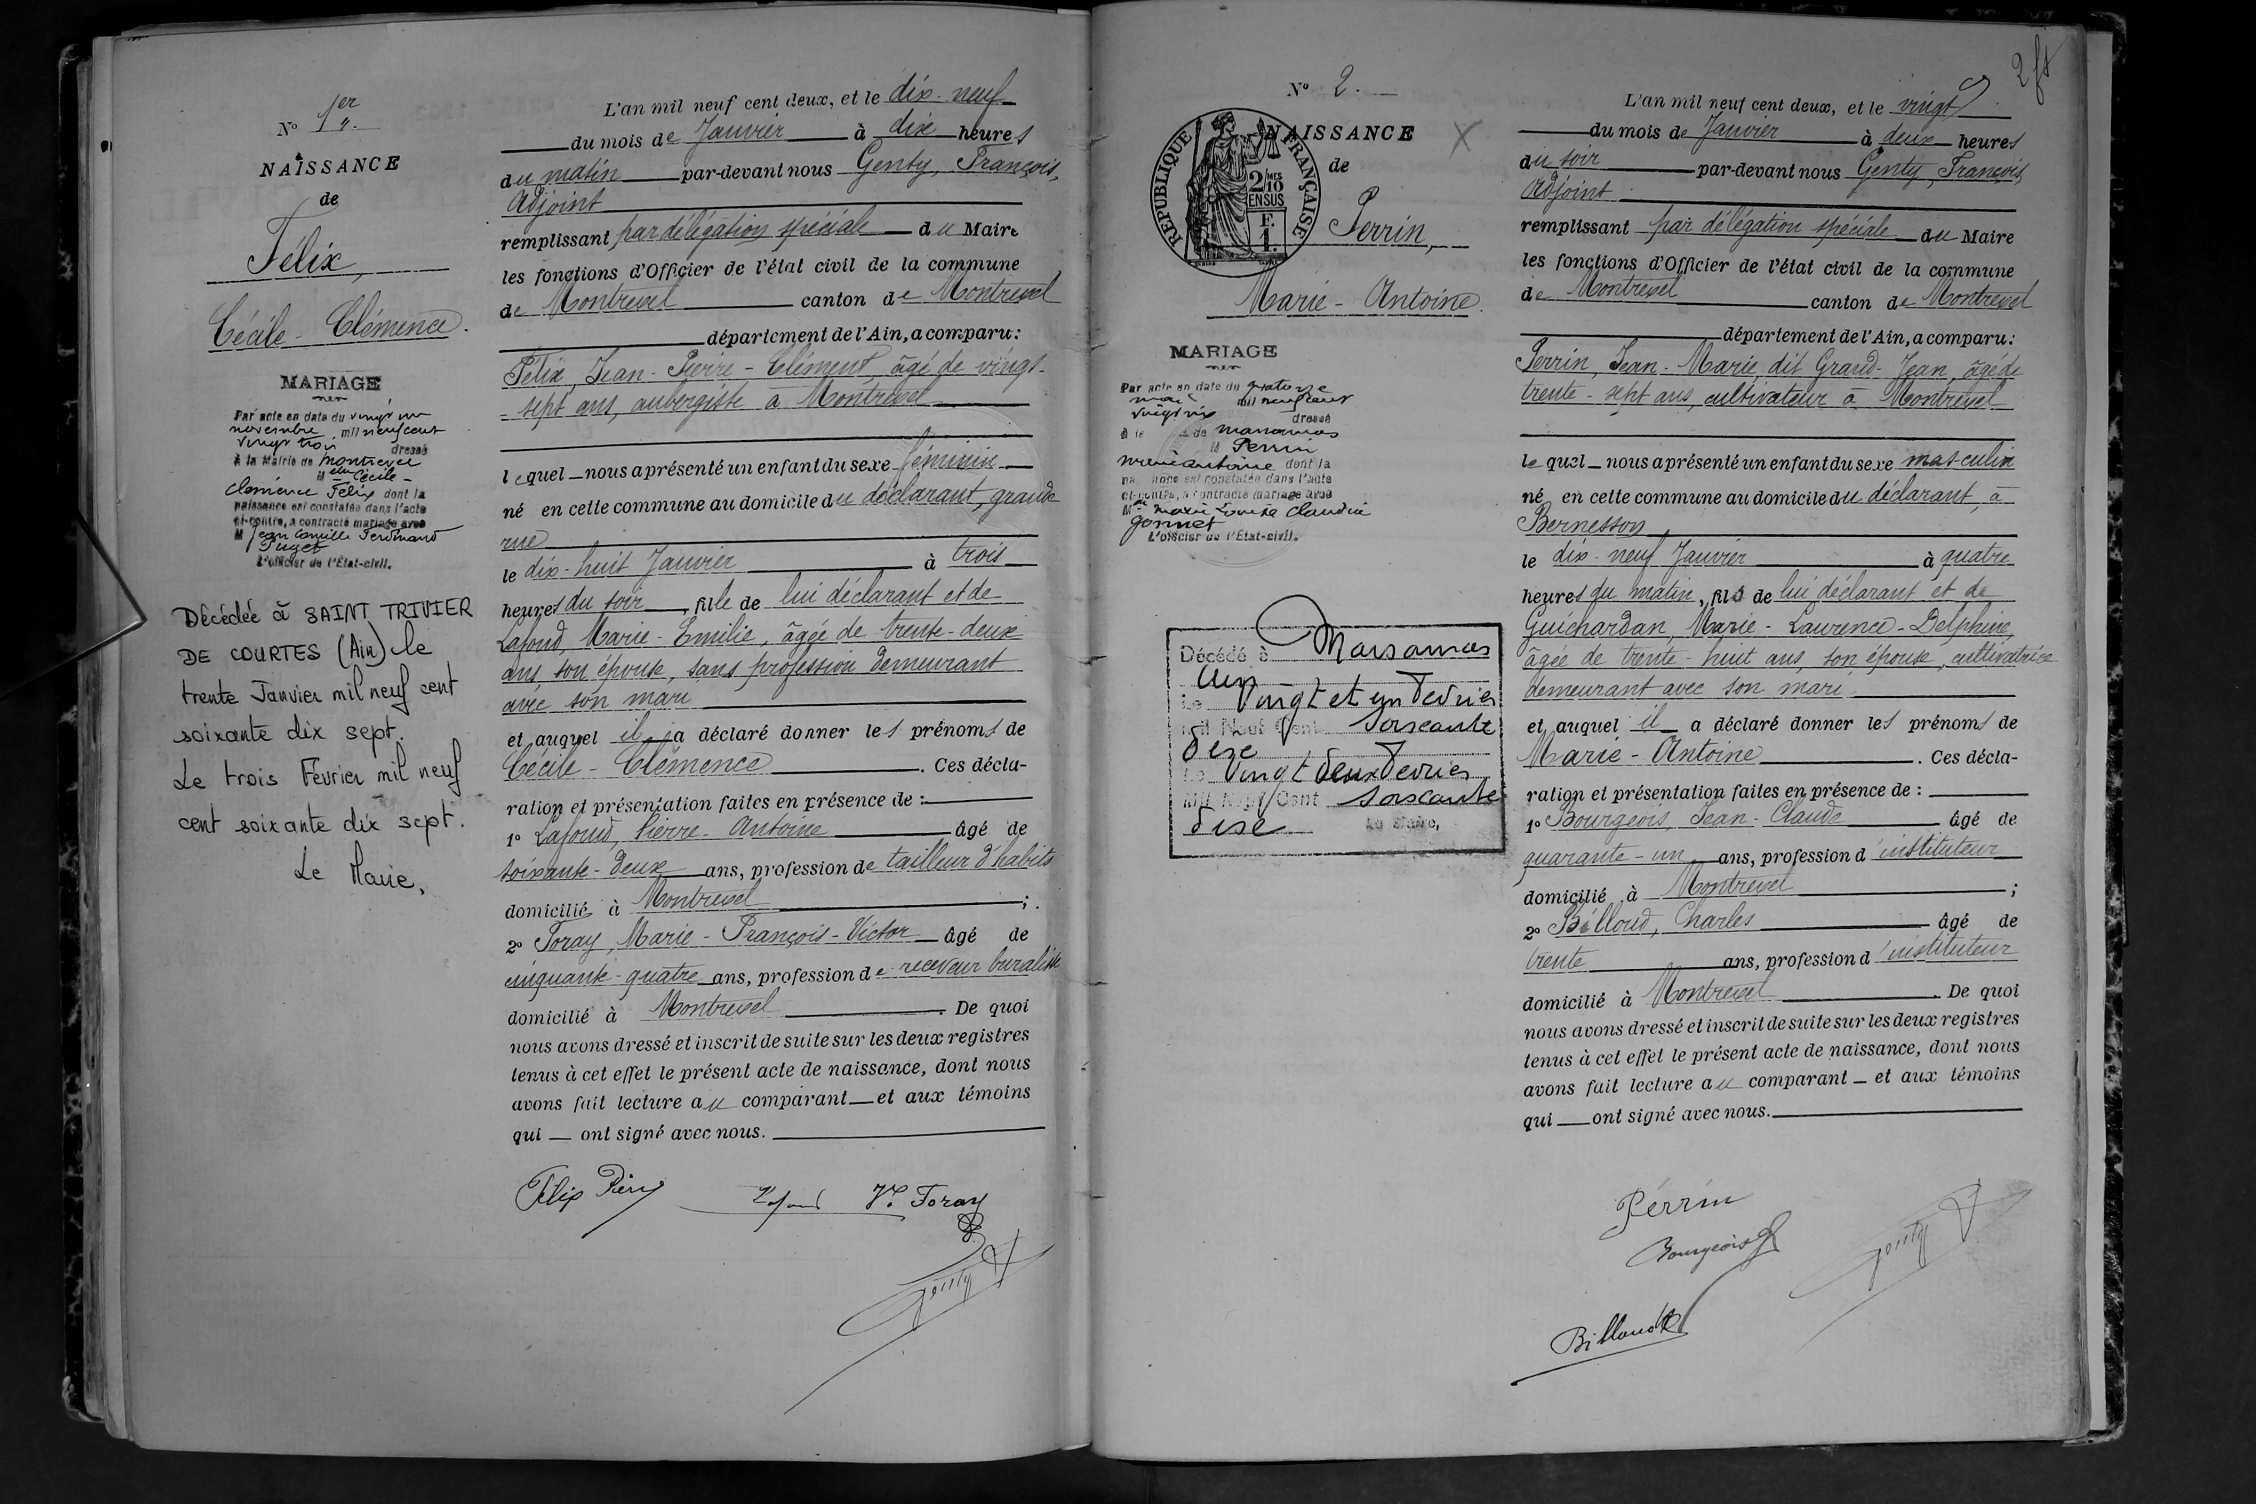 N° 1er
NAISSANCE
de
Félix,
Cécile - Clémence.
MARIAGE
Par acte en date du vingt un
novembre mil neuf cent
vingt trois dressé
à la Mairie de Montrevel
Melle Cécile -
Clémence Félix dont la
naissance est constatée dans l'acte
ci-contre, a contracté mariage avec
M Jean Camille Ferdinand
Puget
L'officier de l'Etat-civil.
Décédée à SAINT TRIVIER
DE COURTES (Ain) le
trente Janvier mil neuf cent
soixante dix sept.
Le trois Février mil neuf
cent soixante dix sept.
Le Maire,
L'an mil neuf cent deux, et le dix-neuf
du mois de Janvier à dix heures
du matin par-devant nous Genty, François,
Adjoint
remplissant par délégation spéciale du Maire
les fonctions d'Officier de l'état civil de la commune
de Montrevel canton de Montrevel
département de l'Ain, a comparu:
Félix, Jean-Pierre-Clément, âgé de vingt-
-sept ans, aubergiste à Montrevel
lequel nous a présenté un enfant du sexe féminin
né en cette commune au domicile du déclarant, grande
rue
le dix-huit Janvier à trois
heures du soir, fille de lui déclarant et de
Lafond, Marie-Emilie, âgée de trente-deux
ans son épouse, sans profession demeurant
avec son mari
et auquel il a déclaré donner les prénoms de
Cécile - Clémence. Ces décla-
ration et présentation faites en présence de:
1° Lafond, Pierre-Antoine âgé de
soixante-deux ans, profession de tailleur d'habits
domicilié à Montrevel;
2° Foray, Marie-François-Victor âgé de
cinquante-quatre ans, profession de receveur buraliste
domicilié à Montrevel. De quoi
nous avons dressé et inscrit de suite sur les deux registres
tenus à cet effet le présent acte de naissance, dont nous
avons fait lecture au comparant et aux témoins
qui ont signé avec nous.
Félix Pierre Lafond Vr Foray
Genty
2 ft
N° 2.
NAISSANCE
de
RÉPUBLIQUE FRANÇAISE
2/10
EN SUS
Perrin,
Marie - Antoine.
MARIAGE
Par acte en date du quatorze
mai mil neuf cent
vingt six dressé
à la de Marsonnas
M Perrin
Marie Antoine dont la
naissance est constatée dans l'acte
ci-contre, a contracté mariage avec
Melle Marie Louise Claudia
Gonnet
L'officier de l'Etat-civil.
Décédé à Marsonnas
Ain
Le Vingt et un Fevrier
Mil Neuf Cent soixante
dixe
Le Vingt deux Fevrier
Mil Neuf Cent soixante
dixe Le Maire,
L'an mil neuf cent deux, et le vingt
du mois de Janvier à deux heures
du soir par-devant nous Genty, François
Adjoint
remplissant par délégation spéciale du Maire
les fonctions d'Officier de l'état civil de la commune
de Montrevel canton de Montrevel
département de l'Ain, a comparu:
Perrin, Jean-Marie, dit Grand-Jean, âgé de
trente-sept ans, cultivateur à Montrevel
lequel nous a présenté un enfant du sexe masculin
né en cette commune au domicile du déclarant, à
Bernesson
le dix-neuf Janvier à quatre
heures du matin, fils de lui déclarant et de
Guichardan, Marie-Laurence-Delphine,
âgée de trente-huit ans, son épouse, cultivatrice
demeurant avec son mari
et auquel il a déclaré donner les prénoms de
Marie - Antoine. Ces décla-
ration et présentation faites en présence de:
1° Bourgeois, Jean-Claude âgé de
quarante-un ans, profession d'instituteur
domicilié à Montrevel;
2° Billoud, Charles âgé de
trente ans, profession d'instituteur
domicilié à Montrevel. De quoi
nous avons dressé et inscrit de suite sur les deux registres
tenus à cet effet le présent acte de naissance, dont nous
avons fait lecture au comparant et aux témoins
qui ont signé avec nous.
Pérrin
Bourgeois
Genty
Billoud